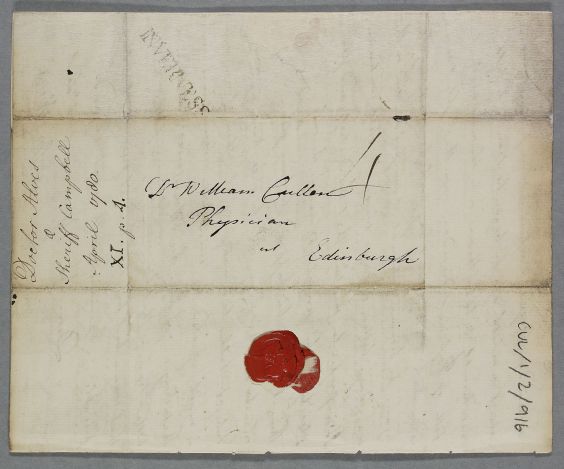 INVERNESS
4
Dr William Cullen
Physician
at
Edinburgh
Doctor Alves
&
Sheriff Campbell
April 1780.
XI. p. 4.
CUL/1/2/916